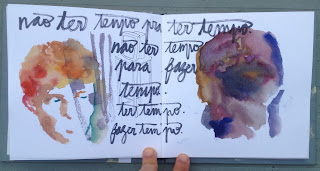 não ter tempo pra ter tempo.
não ter tempo
para fazer
tempo.
ter tempo.
fazer tempo.